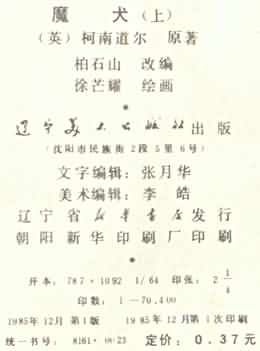 魔 犬（上）
（英）柯南道尔 原著
柏石山 改编
徐芒耀 绘画
辽宁美术出版社出版
（沈阳市民族街2段5里6号）
文字编辑：张月华
美术编辑：李 皓
辽宁省新华书店发行
朝阳新华印刷厂印刷
开本：787·1092 1/64 印张：2 1/4
印数：1—70,400
1985年12月第1版 1985年12月第1次印刷
统一书号：8161·0823 定价：0.37元